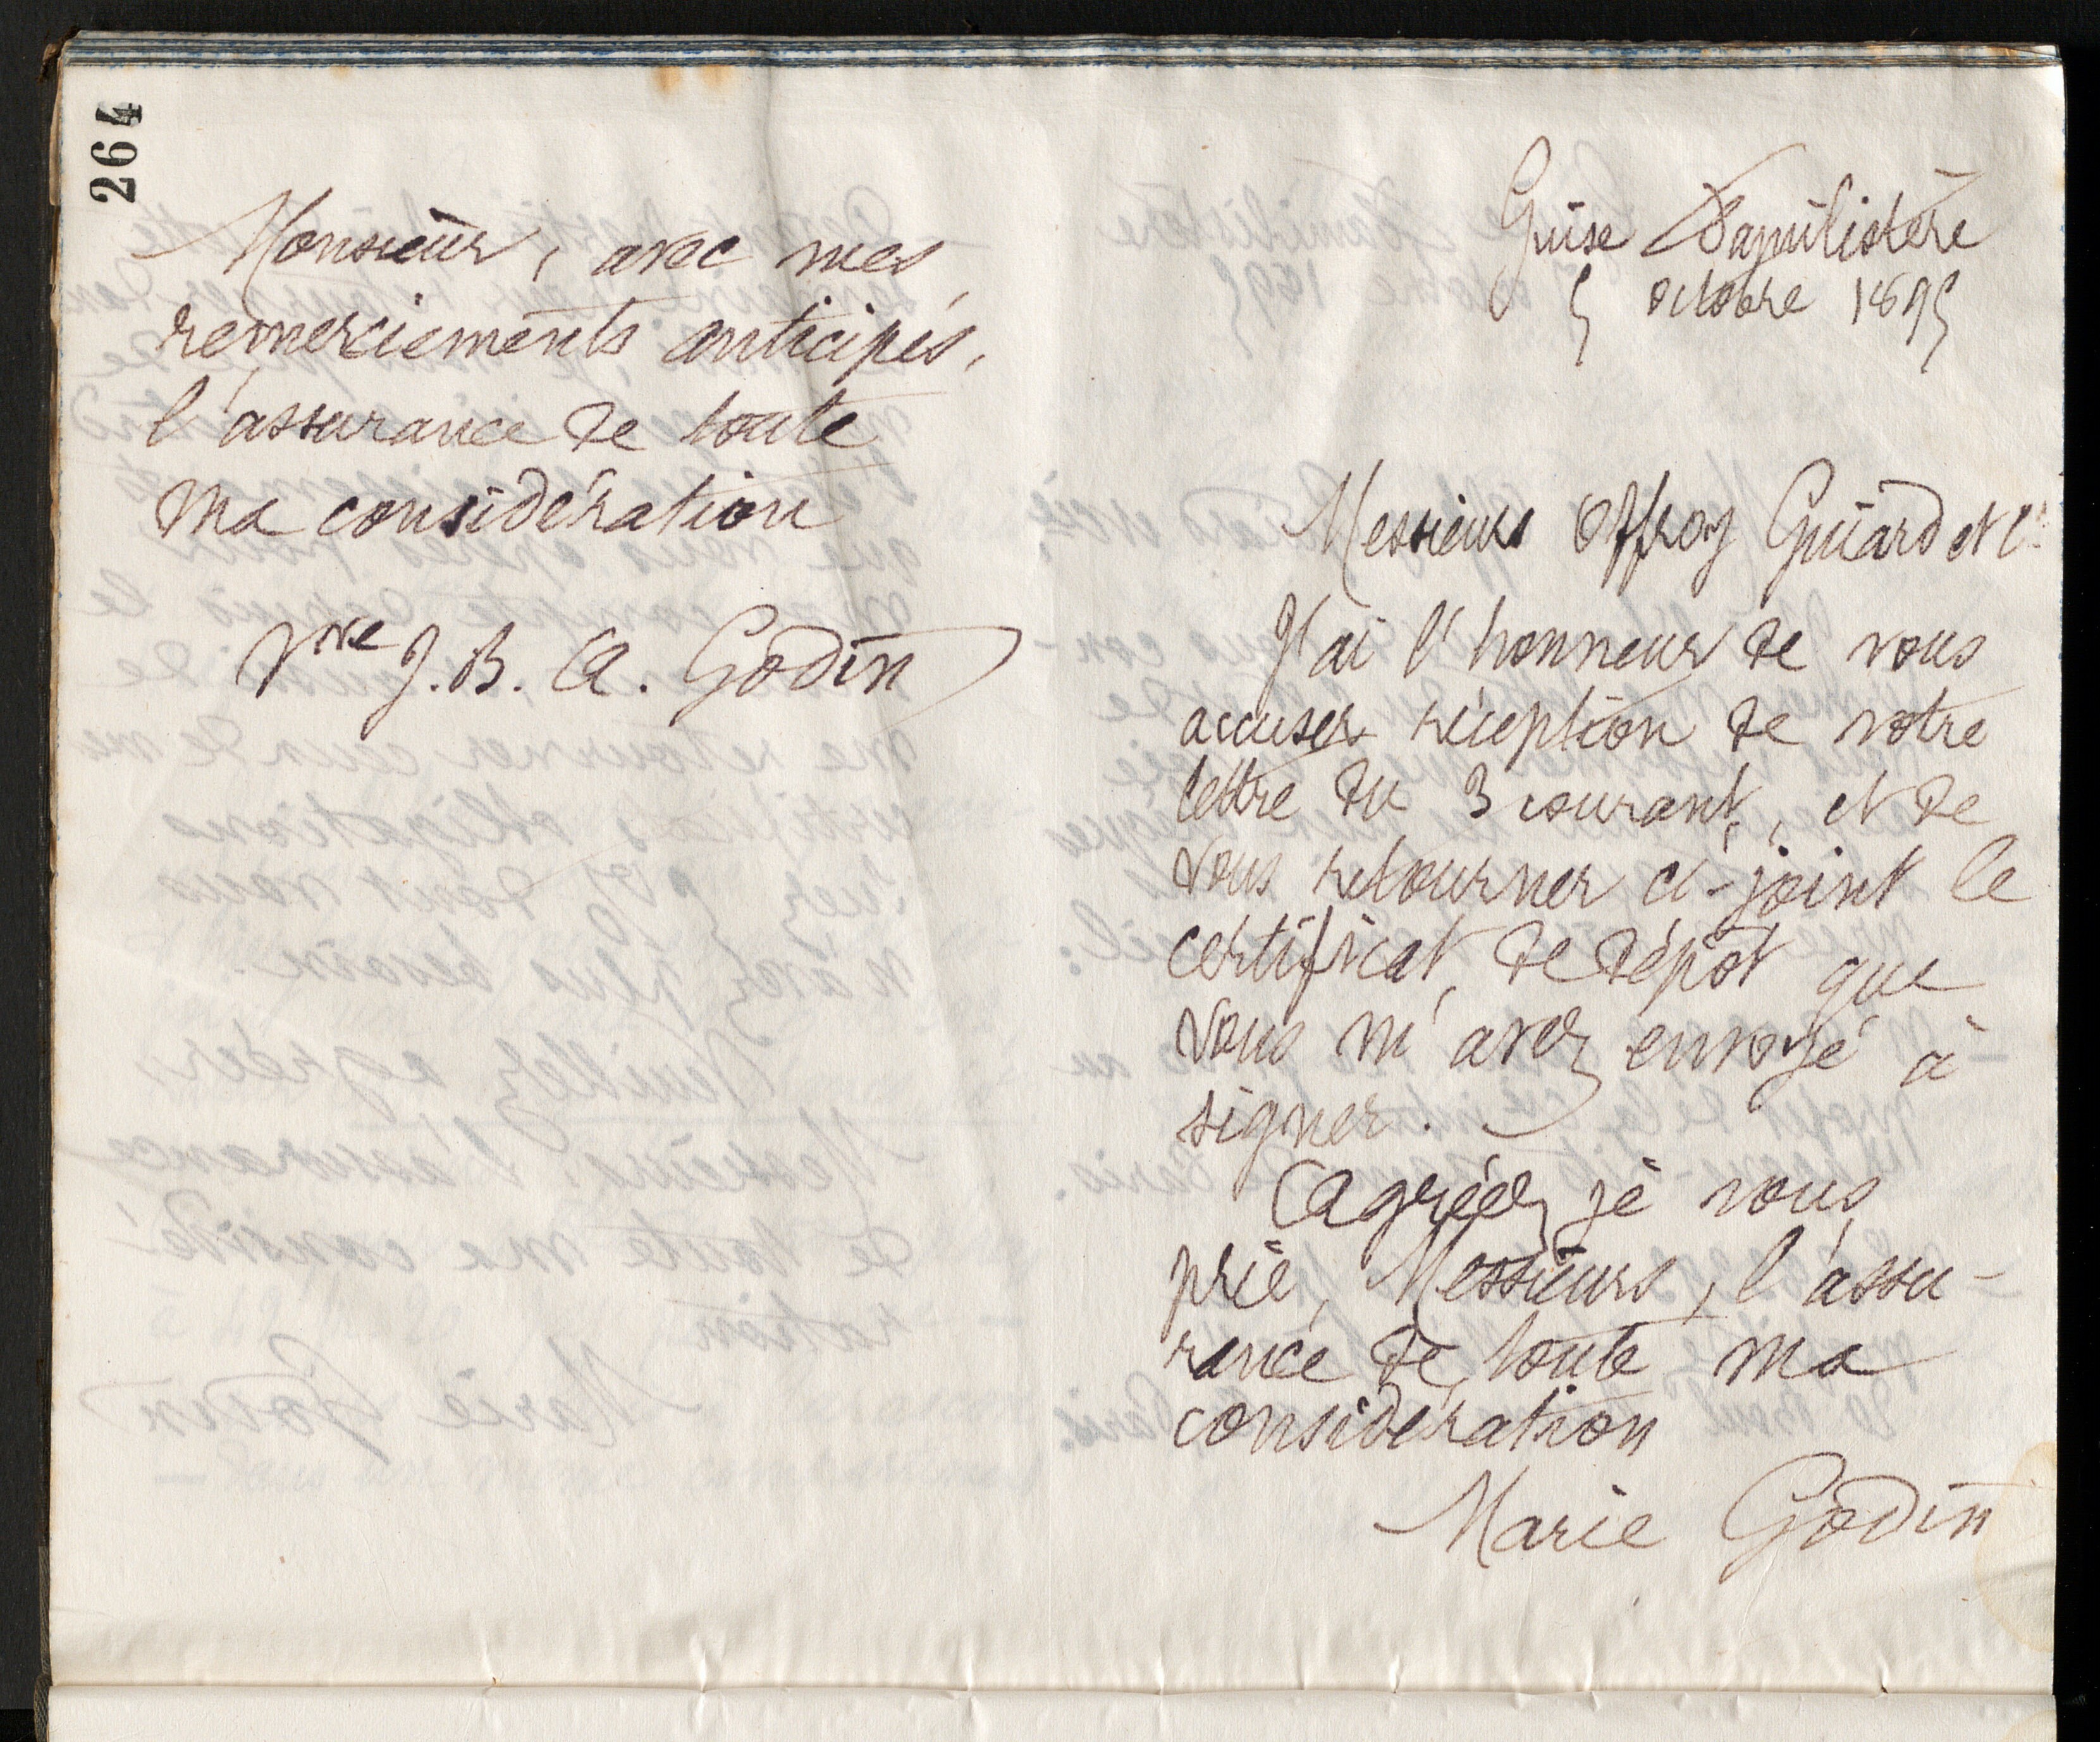 264
Monsieur, avec mes
remerciements anticipés,
l'assurance de toute
ma considération
Vve J. B. A. Godin
Guise Familistère
5 octobre 1895
Messieurs Offroy Guiard et Cie
J'ai l'honneur de vous
accuser réception de votre
lettre du 3 courant, et de
vous retourner ci-joint le
certificat de dépôt que
vous m'avez envoyé à
signer.
Agréez je vous
prie, Messieurs, l'assu-
rance de toute ma
considération
Marie Godin